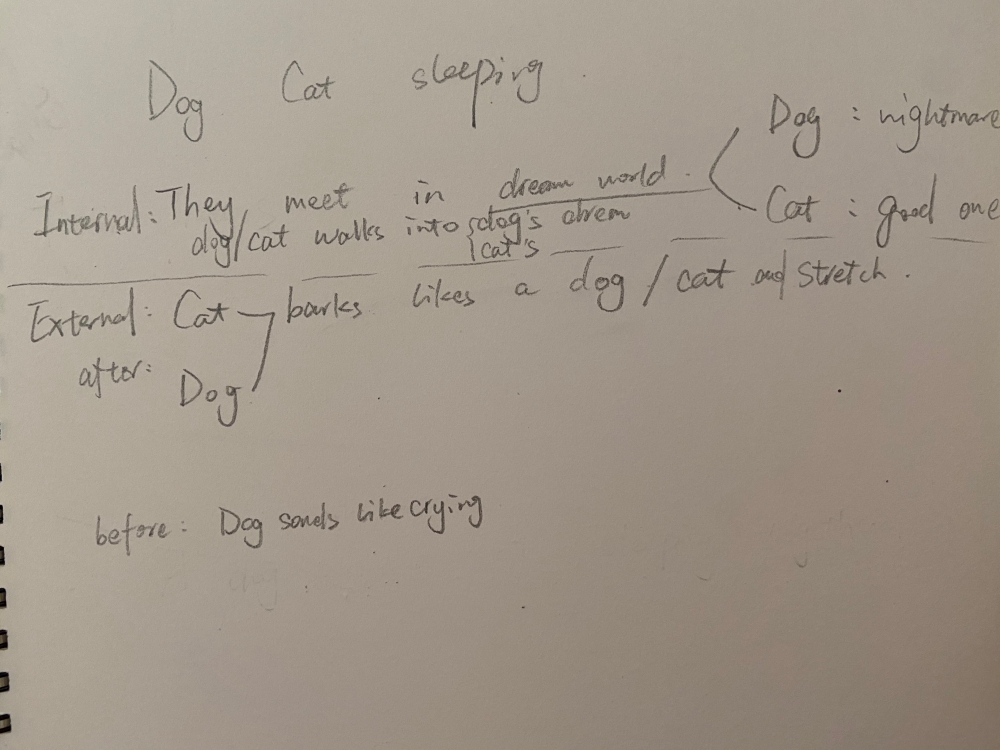 Dog Cat sleeping.
Dog : nightmare
Internal: They meet in dream world.
Cat : good one
dog/cat walks into { dog's drem
cat's
External: Cat barks likes a dog / cat and stretch.
after:
Dog
before: Dog sonds like crying